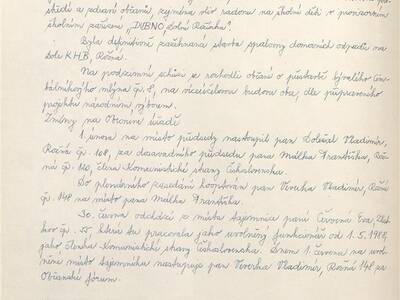 středí a zdraví občanů, zejména vliv radonu na školní děti v provizorním
školním zařízení "DUBNO, Dolní Rožínka".
Byla definitivně zastavena stavba spalovny domovních odpadů na
dole KHB, Rožná.
Na podzimní schůzi se rozhodlo občany o přestavbě bývalého
mlýna čp. 8, na víceúčelovou budovu obce, dle připraveného
projektu národním výborem.
Změny na Obecním úřadě
1. února na místo předsedy nastoupil pan Doležal Vladimír,
Rožná čp. 108, za dosavadního předsedu pana Maška Františka, Rož
ná čp. 110, člena Komunistické strany Československa.
Do plenárního zasedání kooptován pan Veverka Vladimír, Rožná
čp. 148 na místo pana Maška Františka.
30. června odchází z místa tajemnice paní Červená Eva,
kov čp. 55, která tu pracovala jako uvolněný funkcionář od 1.5.1982,
jako členka Komunistické strany Československa. Dnem 1. června na uvol
něné místo tajemníka nastupuje pan Veverka Vladimír, Rožná 148 za
Občanské fórum.